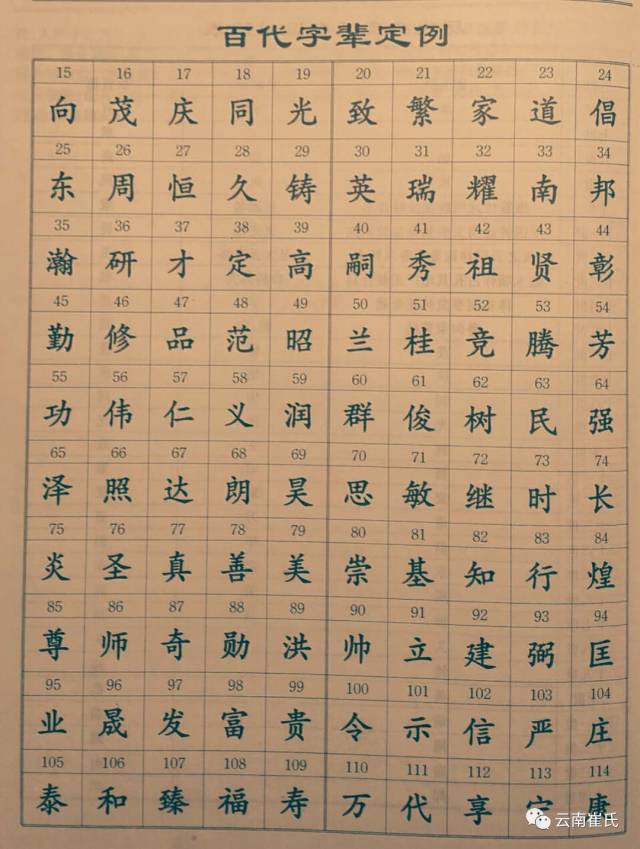 百代字辈定例
15 16 17 18 19 20 21 22 23 24
向 茂 庆 同 光 致 繁 家 道 倡
25 26 27 28 29 30 31 32 33 34
东 周 恒 久 铸 英 瑞 耀 南 邦
35 36 37 38 39 40 41 42 43 44
瀚 研 才 定 高 嗣 秀 祖 贤 彰
45 46 47 48 49 50 51 52 53 54
勤 修 品 范 昭 兰 桂 竞 腾 芳
55 56 57 58 59 60 61 62 63 64
功 伟 仁 义 润 群 俊 树 民 强
65 66 67 68 69 70 71 72 73 74
泽 照 达 朗 昊 思 敏 继 时 长
75 76 77 78 79 80 81 82 83 84
炎 圣 真 善 美 崇 基 知 行 煌
85 86 87 88 89 90 91 92 93 94
尊 师 奇 勋 洪 帅 立 建 弼 匡
95 96 97 98 99 100 101 102 103 104
业 晟 发 富 贵 令 示 信 严 庄
105 106 107 108 109 110 111 112 113 114
泰 和 臻 福 寿 万 代 享 康
云南崔氏